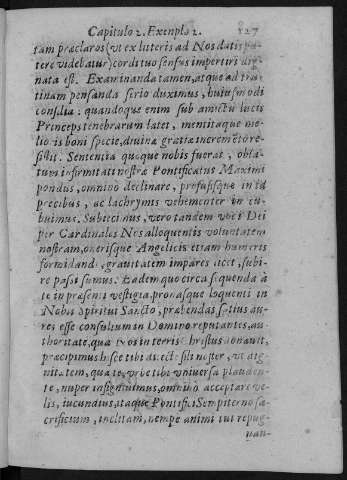 Capitulo 2. Exemplo 2. 127
tam præclaros (vt ex luteris ad Nos datis pa-
tere videbatur) cordi tuo sensus impertiri dig-
nata est. Examinanda tamen, atque ad tru-
tinam pensanda serio duximus, huiusmodi
consilia: quandoque enim sub amictu lucis
Princeps tenebrarum latet, mentitaque me-
lioris boni specie, diuinæ gratiæ inerem
sistit. Sententia quoque nobis fuerat, obla-
tum infirmitati nostræ Pontificatus Maximi
pondus, omnino declinare, profusisque in id
precibus, ac lachrymis vehementer in cu-
buimus. Subiecimus, vero tandem voci Dei
per Cardinales Nos alloquentis voluntatem
nostram, onerisque Angelicis etiam humeris
formidandi, grauitatem impares licet, subi-
re passi sumus. Eadem quo circa sequenda à
te in præsenti vestigia, pronasque loquenti in
Nobis Spiritui Sancto, præbendas satius au-
res esse consultum in Domino reputantes, au-
thoritate, qua nos in terris Christus donauit,
præcipimus hisce tibi dilecte fili noster, vt dig-
nitatem, qua te, vrbe tibi vniuersa plauden-
te, nuper insigniuimus, omnino acceptare ve-
lis, iucundius, itaque Pontifici Sempiterno sa-
crificium, inclitam, nempe animi tui repug-
nan-